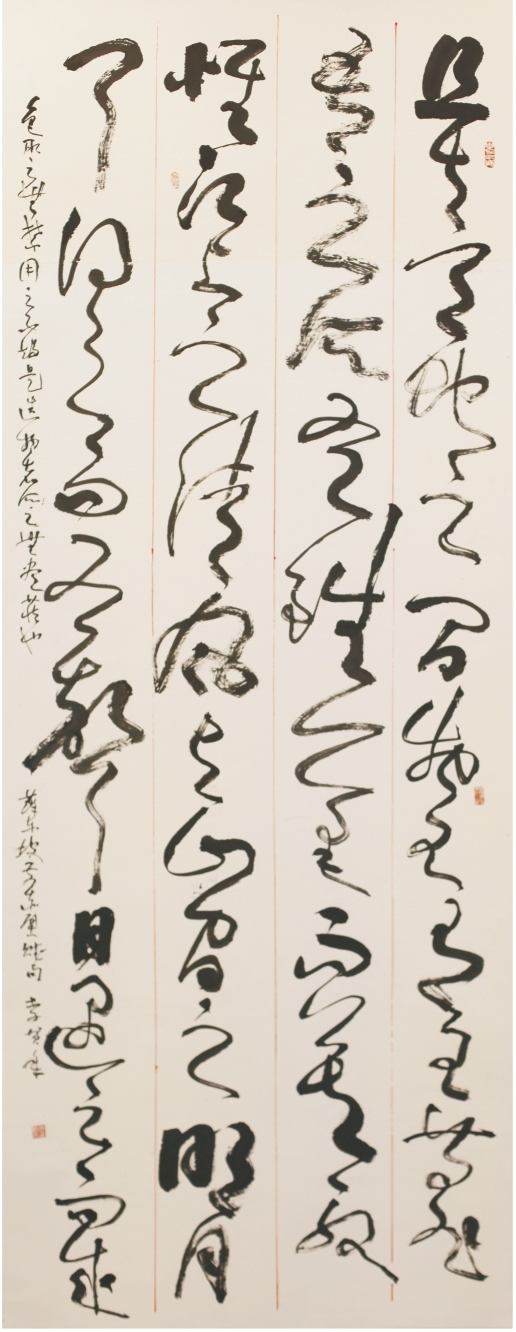 且夫天地之間物各有主苟非
吾之所有雖一毫而莫取
惟江上之清風與山間之明月
耳得之而為聲目遇之而成
色取之無禁用之不竭是造物者之無盡藏也 蘇東坡前赤壁賦句